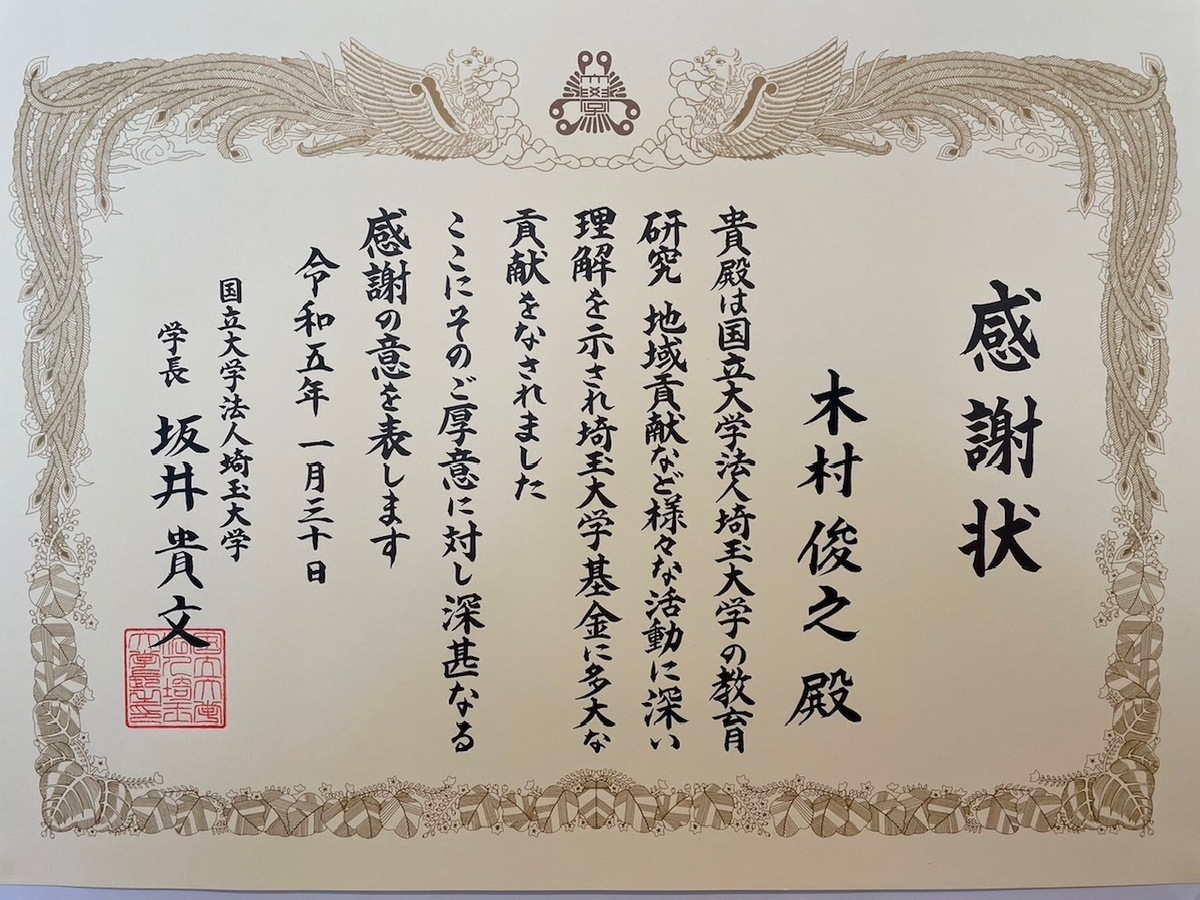 感謝状
木村俊之 殿
貴殿は国立大学法人埼玉大学の教育
研究 地域貢献など様々な活動に深い
理解を示され埼玉大学基金に多大な
貢献をなされました
ここにそのご厚意に対し深甚なる
感謝の意を表します
令和五年 一月三十日
国立大学法人埼玉大学
学長 坂井貴文